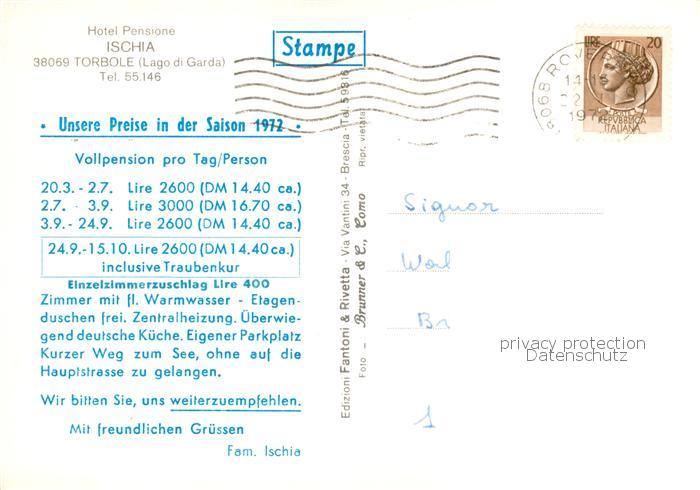 Hotel Pensione
ISCHIA
38069 TORBOLE (Lago di Garda)
Tel. 55.146
Stampe
• Unsere Preise in der Saison 1972 •
Vollpension pro Tag/Person
20.3. - 2.7. Lire 2600 (DM 14.40 ca.)
2.7. - 3.9. Lire 3000 (DM 16.70 ca.)
3.9. - 24.9. Lire 2600 (DM 14.40 ca.)
24.9.-15.10. Lire 2600 (DM 14.40 ca.)
inclusive Traubenkur
Einzelzimmerzuschlag Lire 400
Zimmer mit fl. Warmwasser - Etagen-
duschen frei. Zentralheizung. Überwie-
gend deutsche Küche. Eigener Parkplatz
Kurzer Weg zum See, ohne auf die
Hauptstrasse zu gelangen.
Wir bitten Sie, uns weiterzuempfehlen.
Mit freundlichen Grüssen
Fam. Ischia
Edizioni Fantoni & Rivetta - Via Vantini 34 - Brescia - Tel. 59316
Foto - Brunner & C., Como Ripr. vietata
LIRE 20
REPVBBLICA
ITALIANA
14-
Signor
Br
privacy protection
Datenschutz